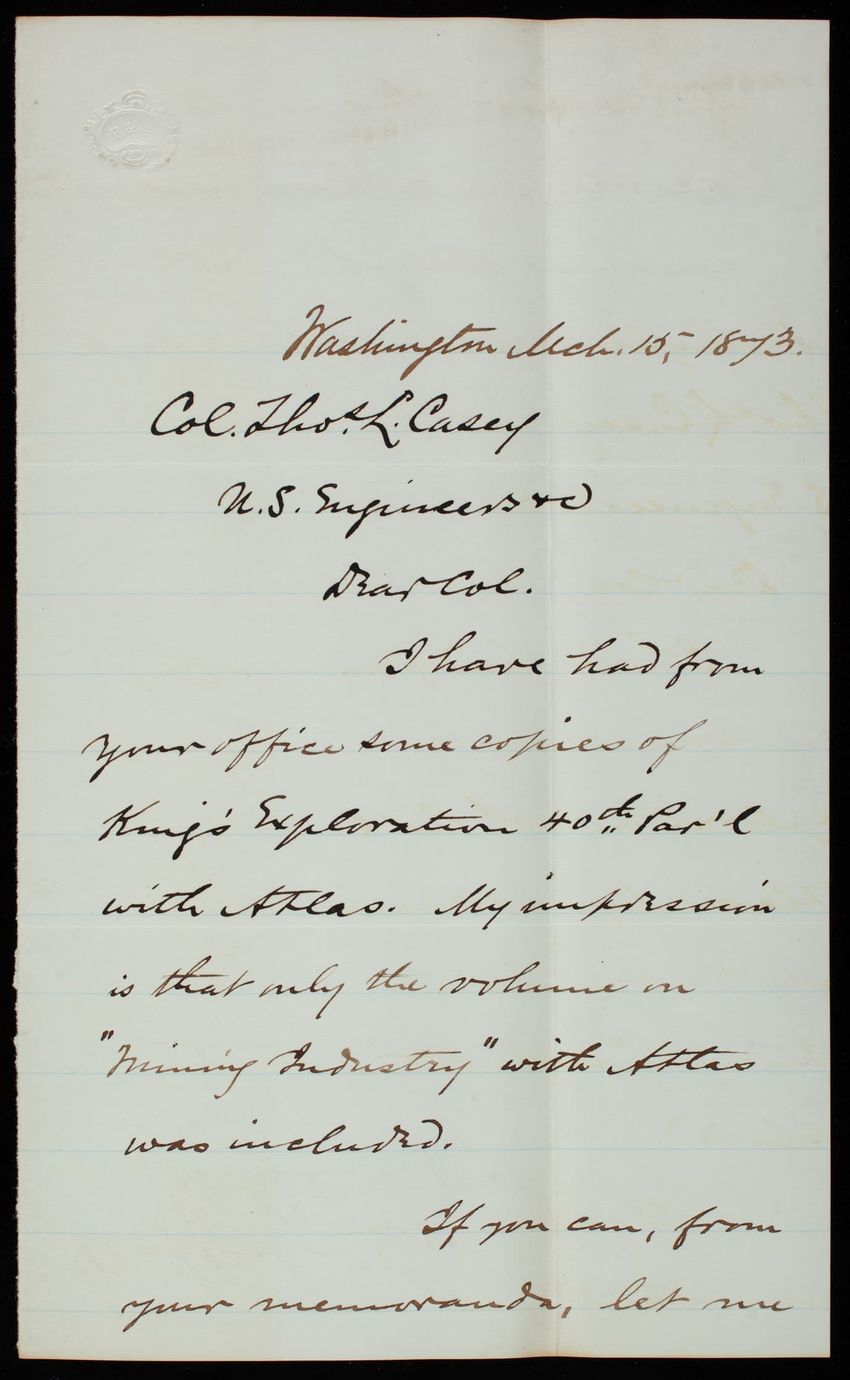 Washington Mch. 15, 1873.
Col. Thos. L. Casey
U.S. Engineers &c
Dear Col.
I have had from
your office some copies of
King's Exploration 40th Par'l
with Atlas. My impression
is that only the volume on
"Mining Industry" with Atlas
was included.
If you can, from
your memoranda, let me